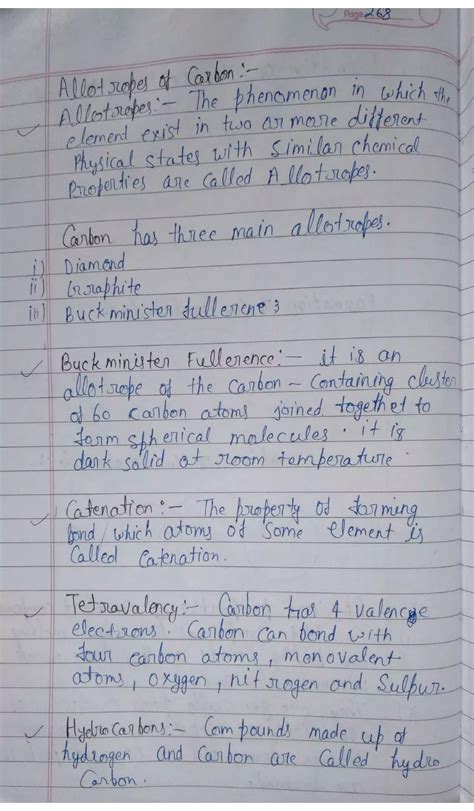 Page 268
Allotropes of Carbon:-
Allotropes:- The phenomenon in which the
element exist in two or more different
Physical states with similar chemical
Properties are called Allotropes.
Carbon has three main allotropes.
i) Diamond
ii) Graphite
iii) Buckminister fullerene
Buckminister Fullerence:- it is an
allotrope of the carbon - containing cluster
of 60 carbon atoms joined togethet to
form spherical molecules. it is
dark solid at room temperature.
Catenation:- The property of forming
bond which atoms of some element is
Called Catenation.
Tetravalency:- Carbon has 4 valence
electrons. Carbon can bond with
four carbon atoms, monovalent
atoms, oxygen, nitrogen and Sulpur.
Hydrocarbons:- Compounds made up of
hydrogen and Carbon are Called hydro
Carbon.